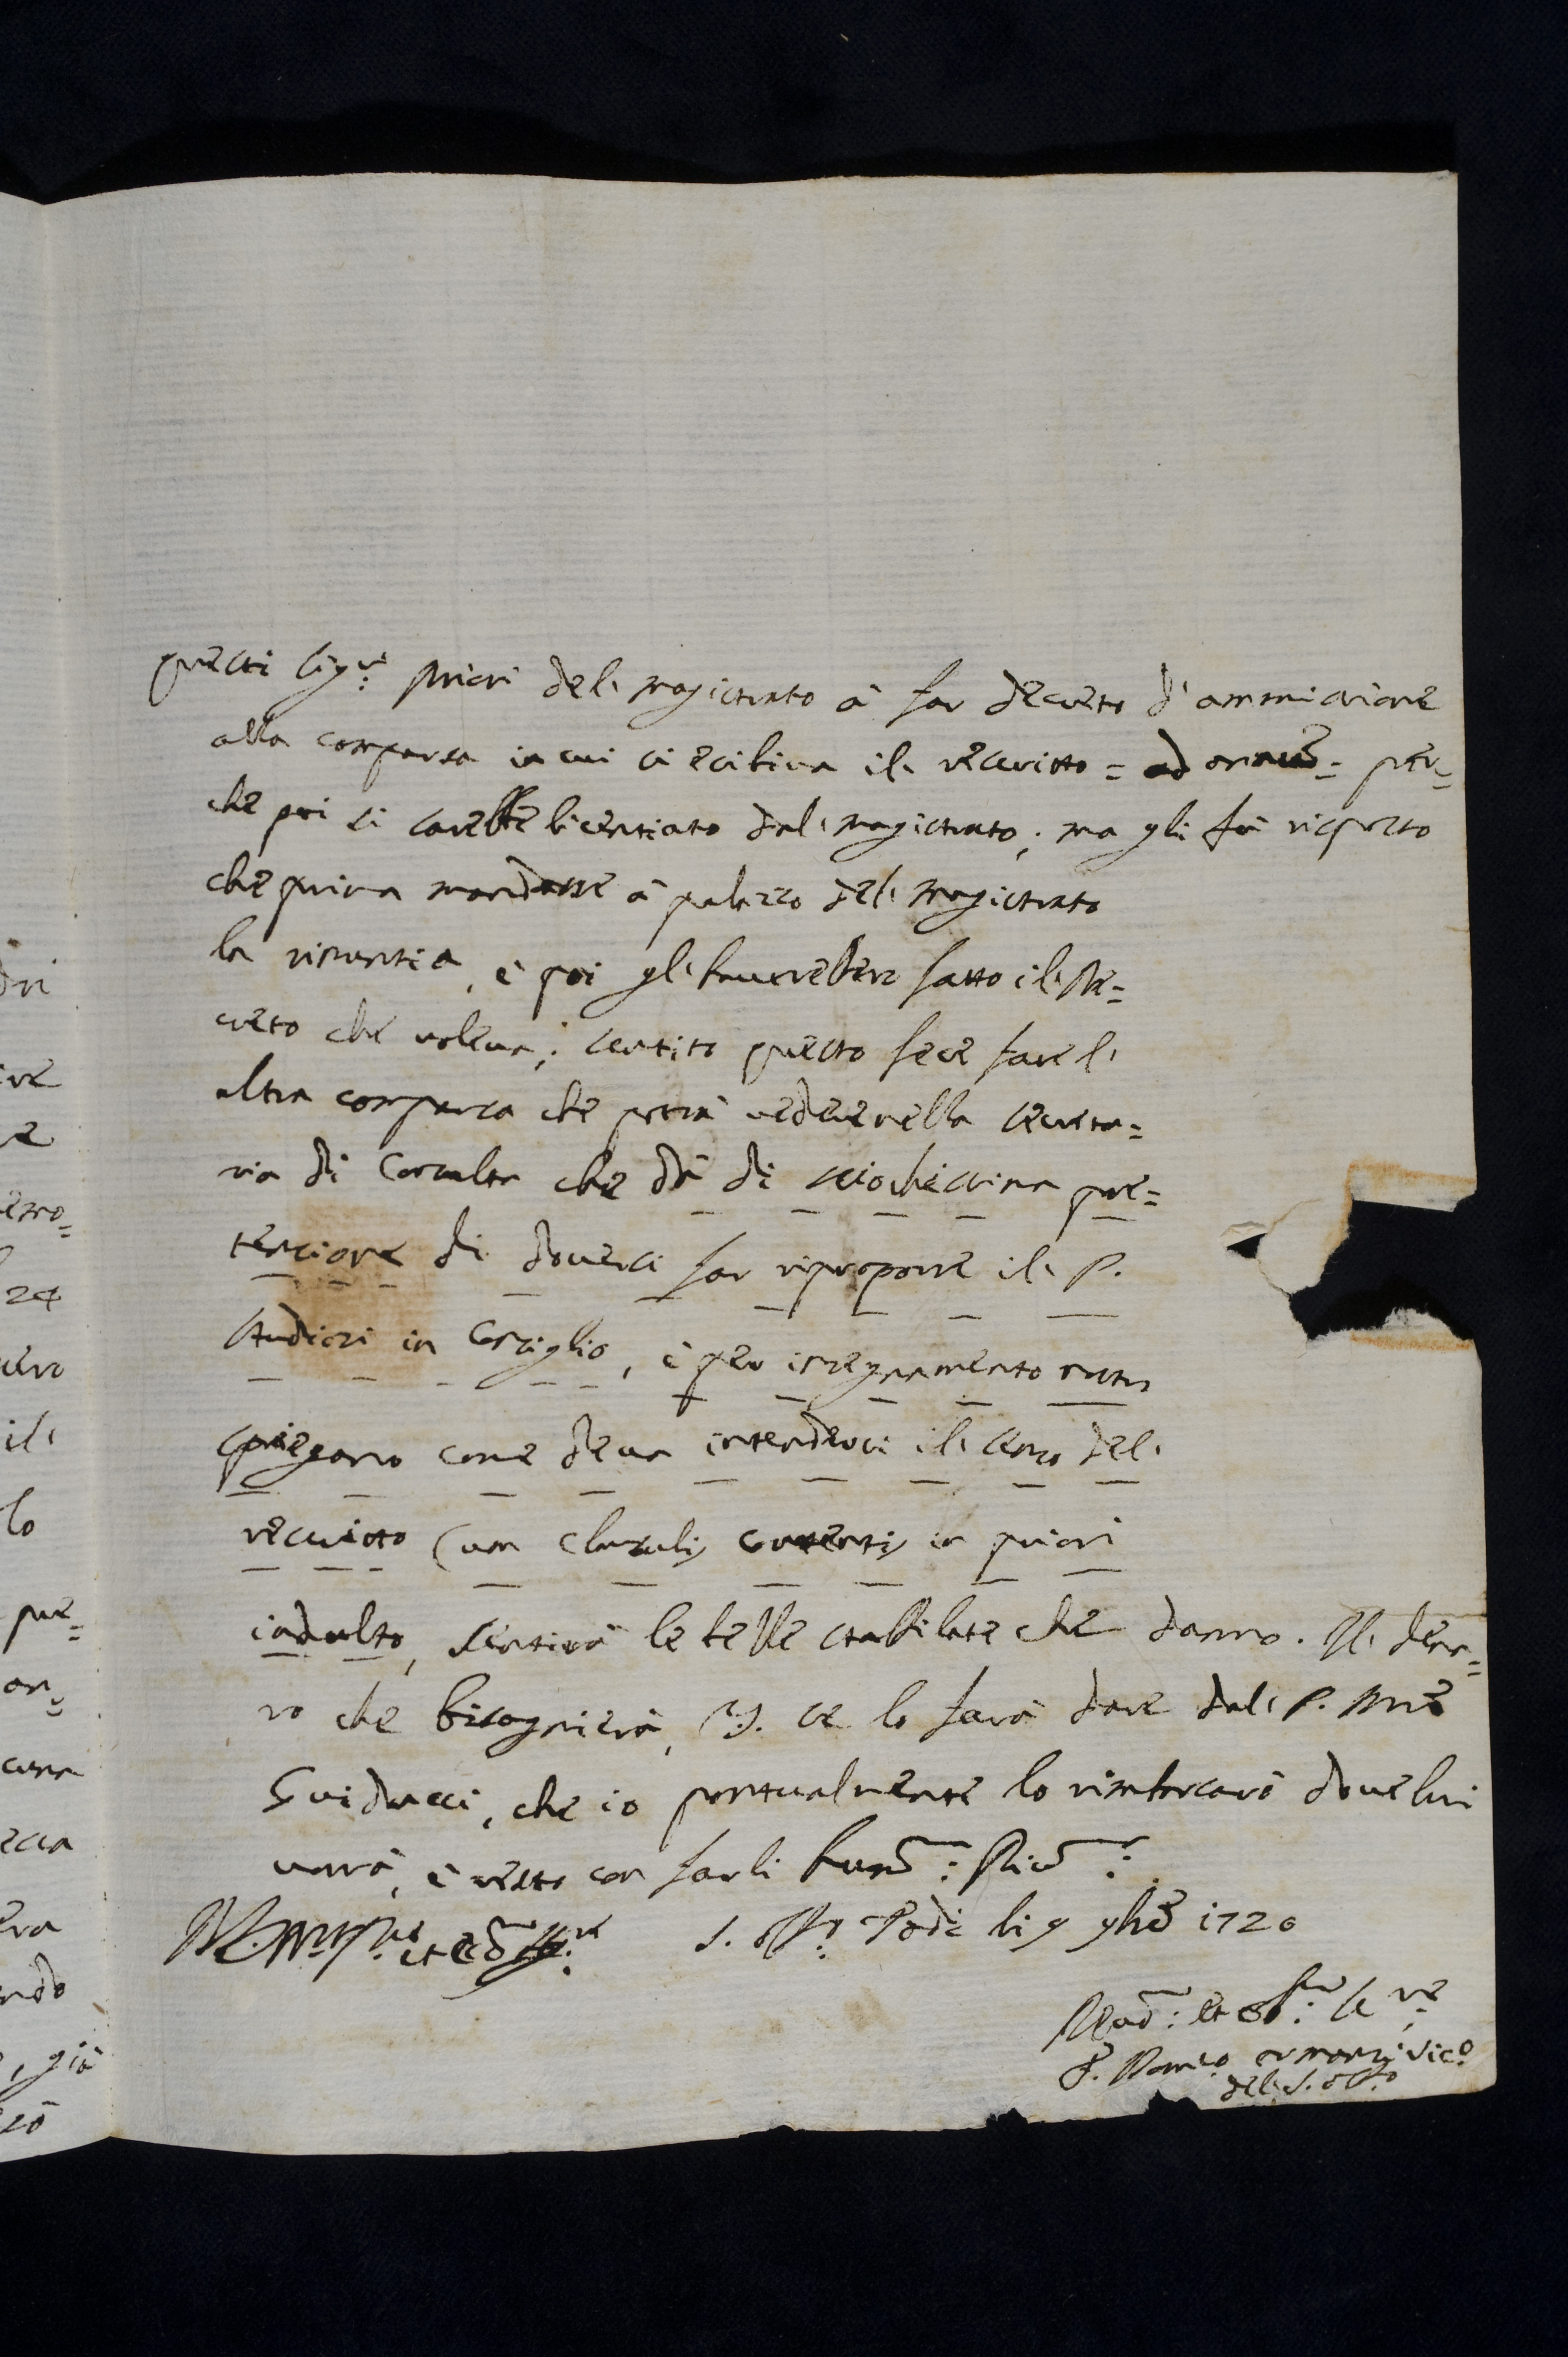 questi Sig.ri Priori del magistrato à far decreto d'ammissione
alla comparsa in cui si esibiva il rescritto = ad = per=
che poi si sarebbe licentiato dal magistrato; ma gli fù risposto
che prima mandasse à palazzo del magistrato
la rinuntia, è poi gl'haverebbero fatto il De=
creto che voleva; sentito questo fece fare l'
altra comparsa che potrà vedere nella secreta=
ria di Consulta che dà di sciochissima pre=
tensione di doversi far riproporre il P.
Studiosi in Consiglio, è per insegnamento
spiegano come deva intendersi il senso del
rescritto cum clausulis contentis in priori
indulto, sentirà le belle che danno. Il dena=
ro che bisognierà, V.S. se lo farà dare dal P. Mro
Guiducci, che io pontualmente lo rimborsarò dove lui
vorrà, è resto con farli hum.: Ric.:
S. Off.o Todi li 9 9bre 1720
et Ob.: Se.re
F. Vic.o
del S. Off.o
dri
ve
emo=
24
il'
lo
pre=
an=
essa
ndo
, già